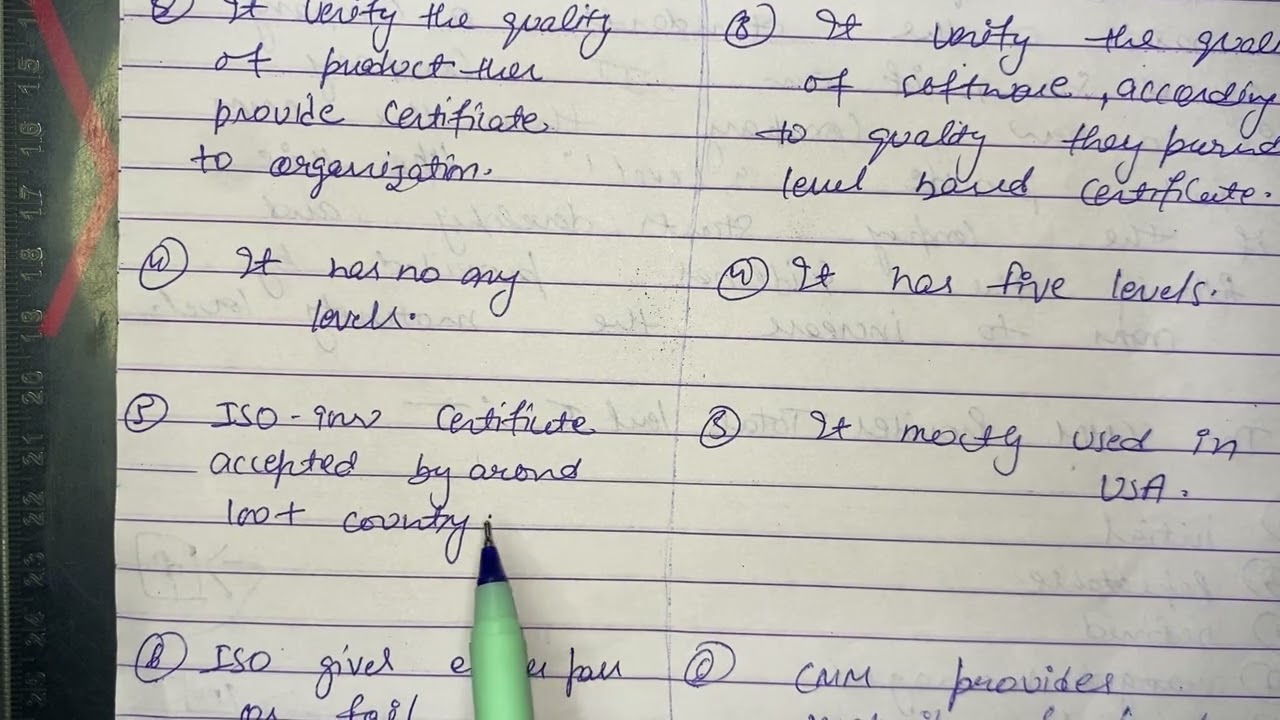 It verify the quality
of product then
provide certificate
to organization.
④ It has no any
levels.
⑤ ISO-9000 Certificate
accepted by arond
100+ country.
⑥ ISO gives pass
or fail
③ It verify the
of software, according
to quality they
level based certificate.
④ It has five levels.
⑤ It mostly used in
USA.
⑥ CMM provides